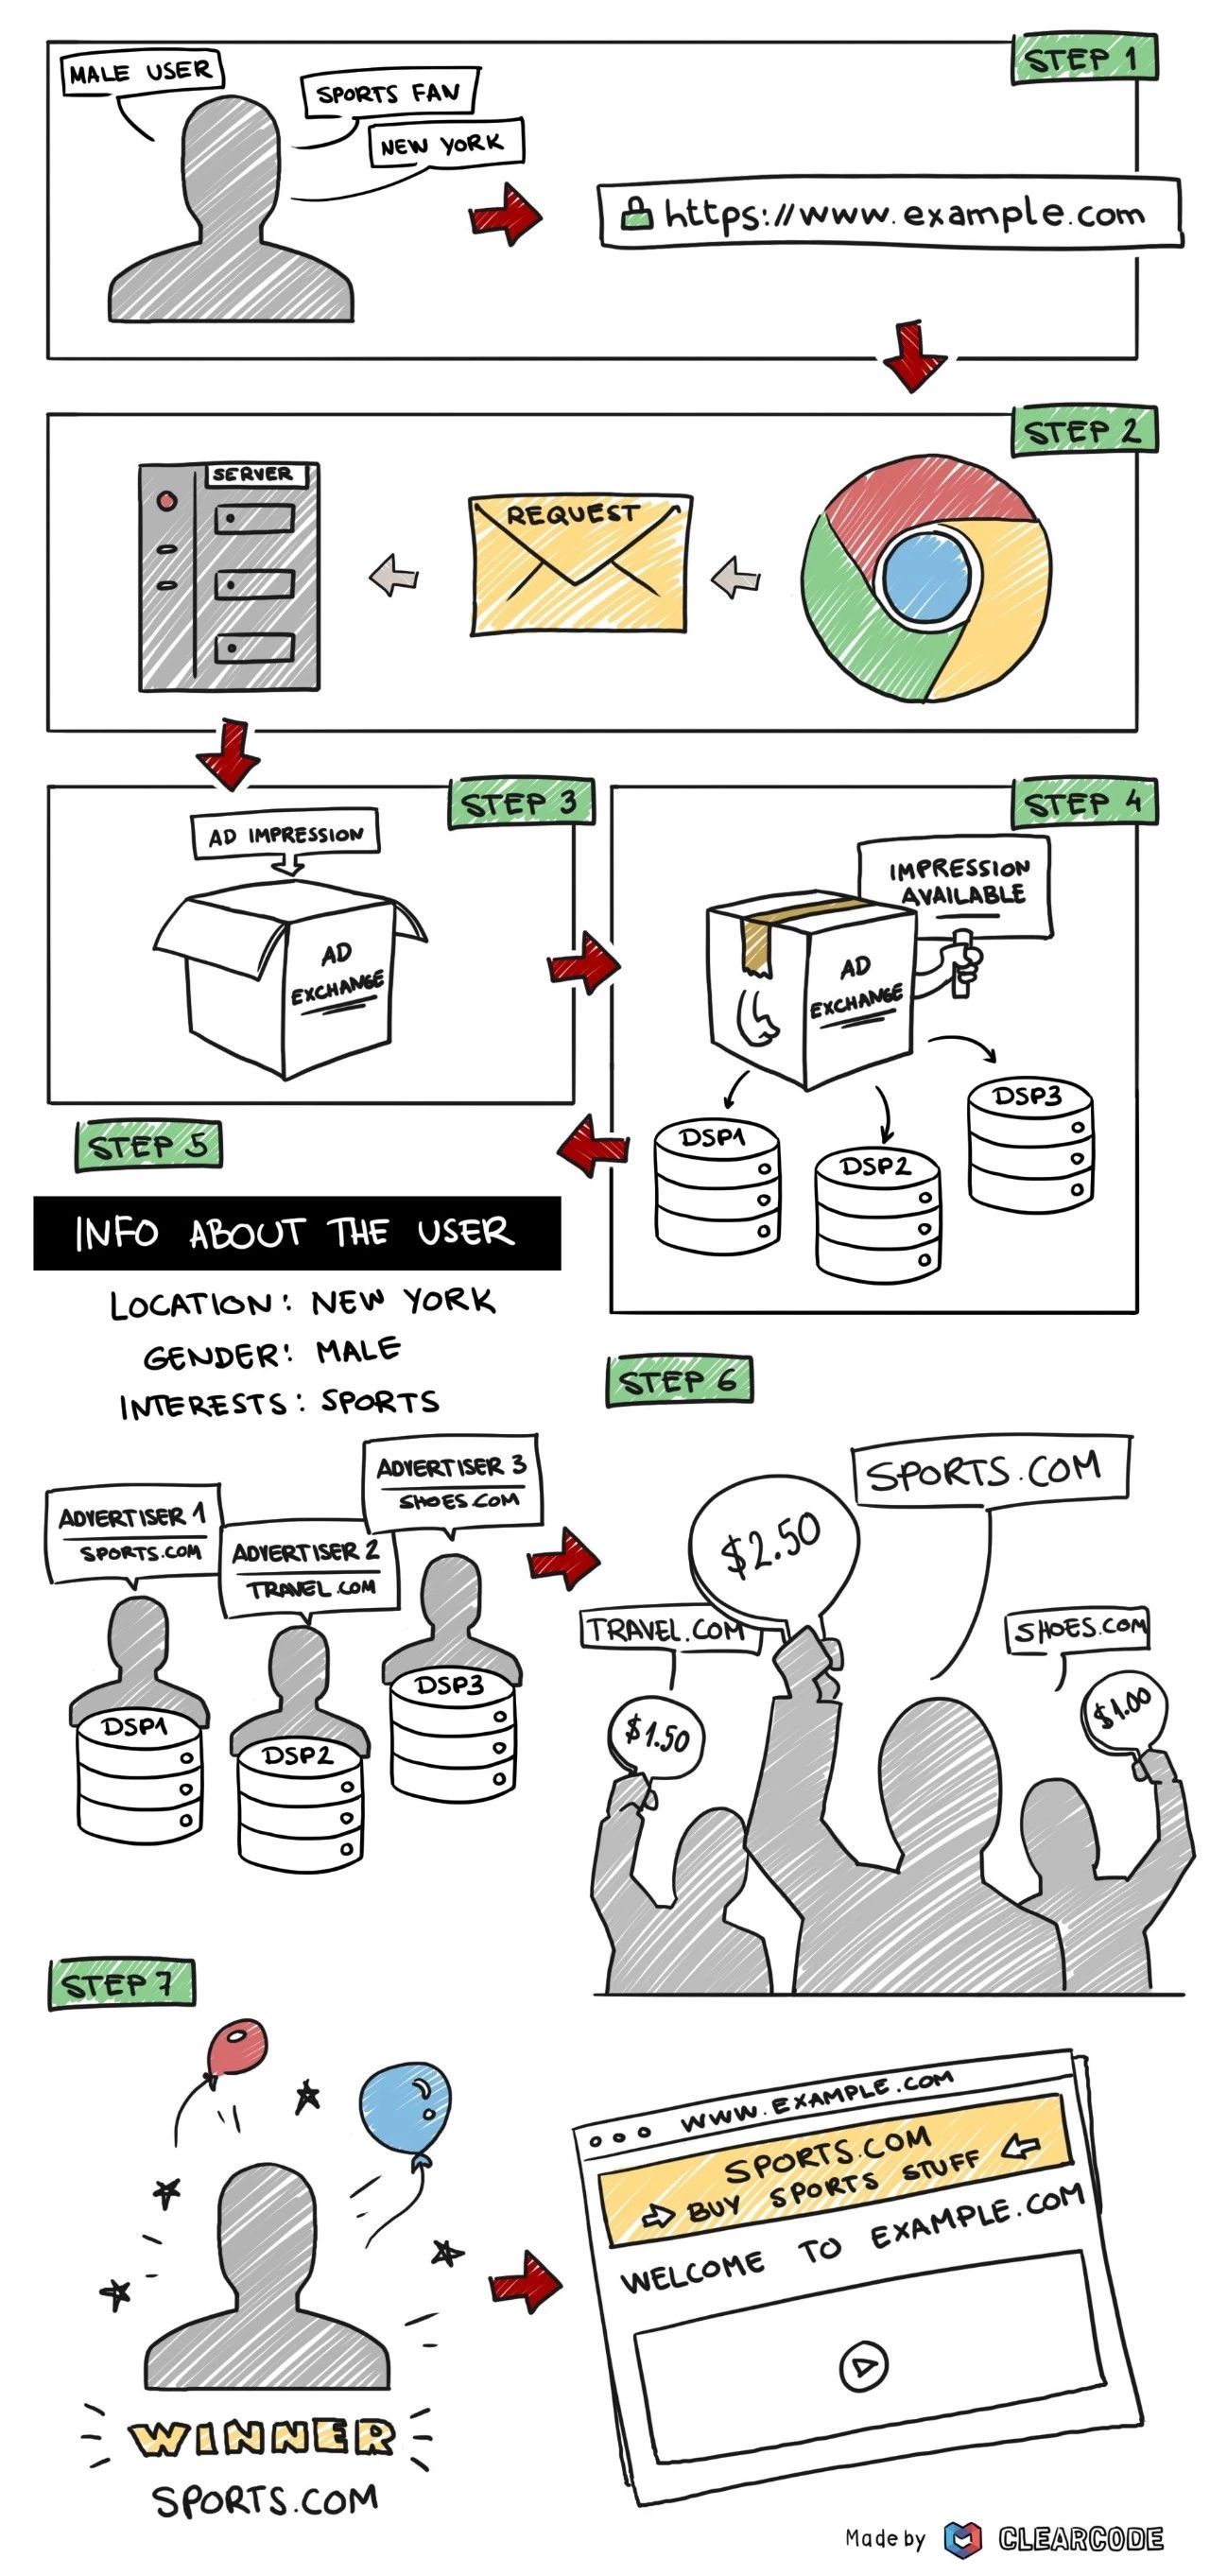 STEP 1
MALE USER
SPORTS FAN
NEW YORK
https://www.example.com
STEP 2
SERVER
REQUEST
STEP 3
AD IMPRESSION
AD
EXCHANGE
STEP 4
IMPRESSION
AVAILABLE
AD
EXCHANGE
DSP1
DSP2
DSP3
STEP 5
INFO ABOUT THE USER
LOCATION: NEW YORK
GENDER: MALE
INTERESTS: SPORTS
ADVERTISER 1
SPORTS.COM
ADVERTISER 2
TRAVEL.COM
ADVERTISER 3
SHOES.COM
DSP1
DSP2
DSP3
STEP 6
SPORTS.COM
$2.50
TRAVEL.COM
$1.50
SHOES.COM
$1.00
STEP 7
WINNER
SPORTS.COM
WWW.EXAMPLE.COM
SPORTS.COM
BUY SPORTS STUFF
WELCOME TO EXAMPLE.COM
Made by CLEARCODE